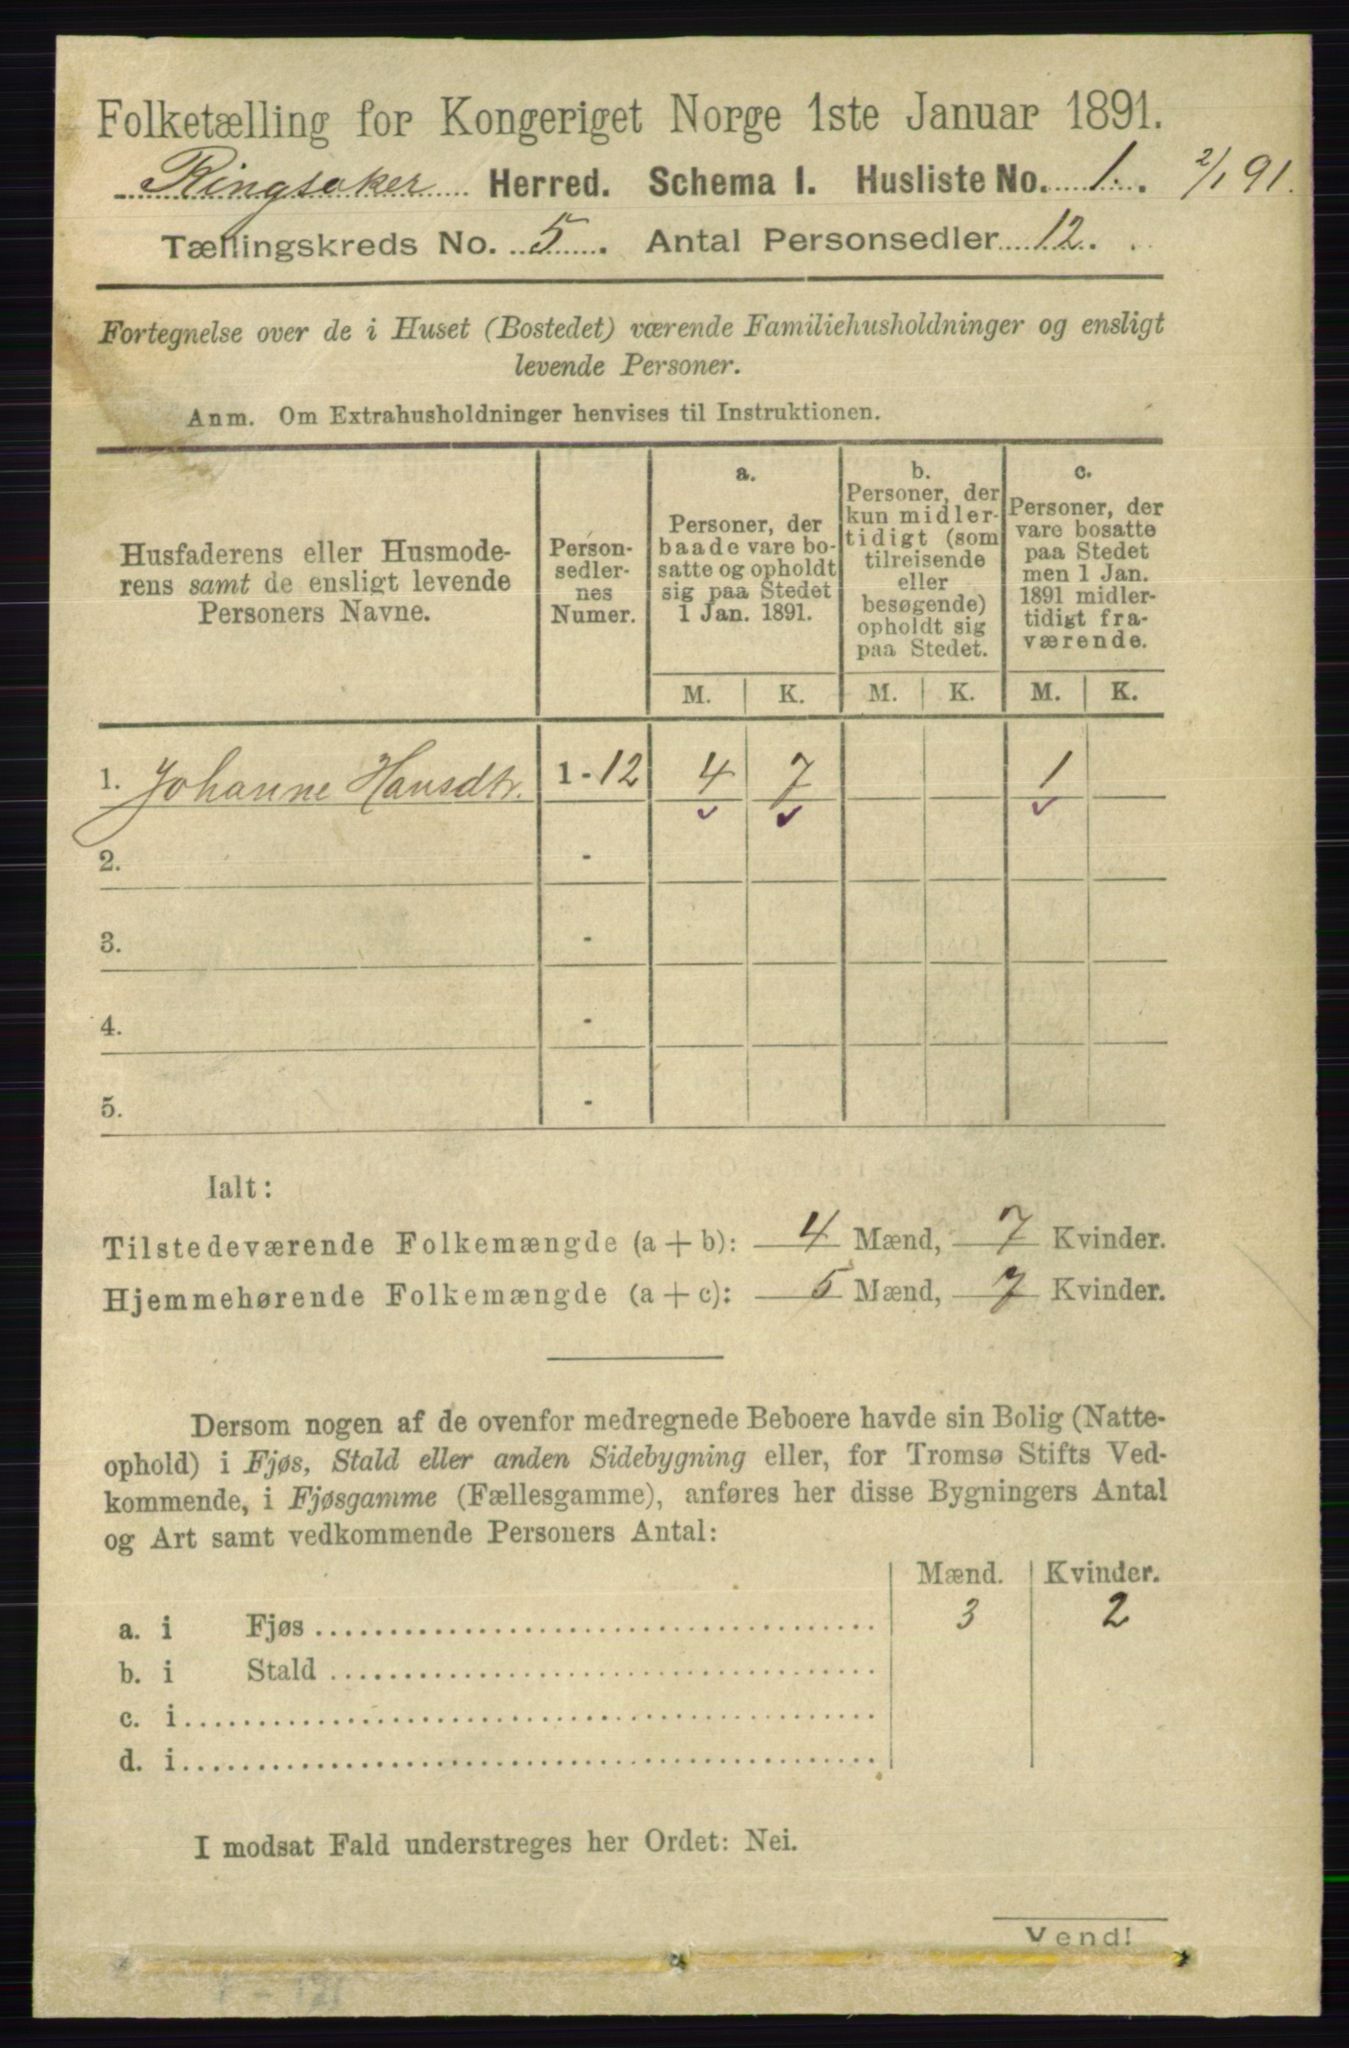 Folketælling for Kongeriget Norge 1ste Januar 1891.
Ringsaker Herred. Schema I. Husliste No. 1. 2/1 91.
Tællingskreds No. 5. Antal Personsedler 12.
Fortegnelse over de i Huset (Bostedet) værende Familiehusholdninger og ensligt
levende Personer.
Anm. Om Extrahusholdninger henvises til Instruktionen.
Husfaderens eller Husmode-
rens samt de ensligt levende
Personers Navne.
Person-
sedler-
nes
Numer.
a.
Personer, der
baade vare bo-
satte og opholdt
sig paa Stedet
1 Jan. 1891.
b.
Personer, der
kun midler-
tidigt (som
tilreisende
eller
besøgende)
opholdt sig
paa Stedet.
c.
Personer, der
vare bosatte
paa Stedet
men 1 Jan.
1891 midler-
tidigt fra-
værende.
M. K. M. K. M. K.
1. Johanne Hansdtr. 1 - 12 4 7 1
2. -
3. -
4. -
5. -
Ialt:
Tilstedeværende Folkemængde (a + b): 4 Mænd, 7 Kvinder.
Hjemmehørende Folkemængde (a + c): 5 Mænd, 7 Kvinder.
Dersom nogen af de ovenfor medregnede Beboere havde sin Bolig (Natte-
ophold) i Fjøs, Stald eller anden Sidebygning eller, for Tromsø Stifts Ved-
kommende, i Fjøsgamme (Fællesgamme), anføres her disse Bygningers Antal
og Art samt vedkommende Personers Antal:
Mænd. Kvinder.
a. i Fjøs 3 2
b. i Stald
c. i
d. i
I modsat Fald understreges her Ordet: Nei.
Vend!